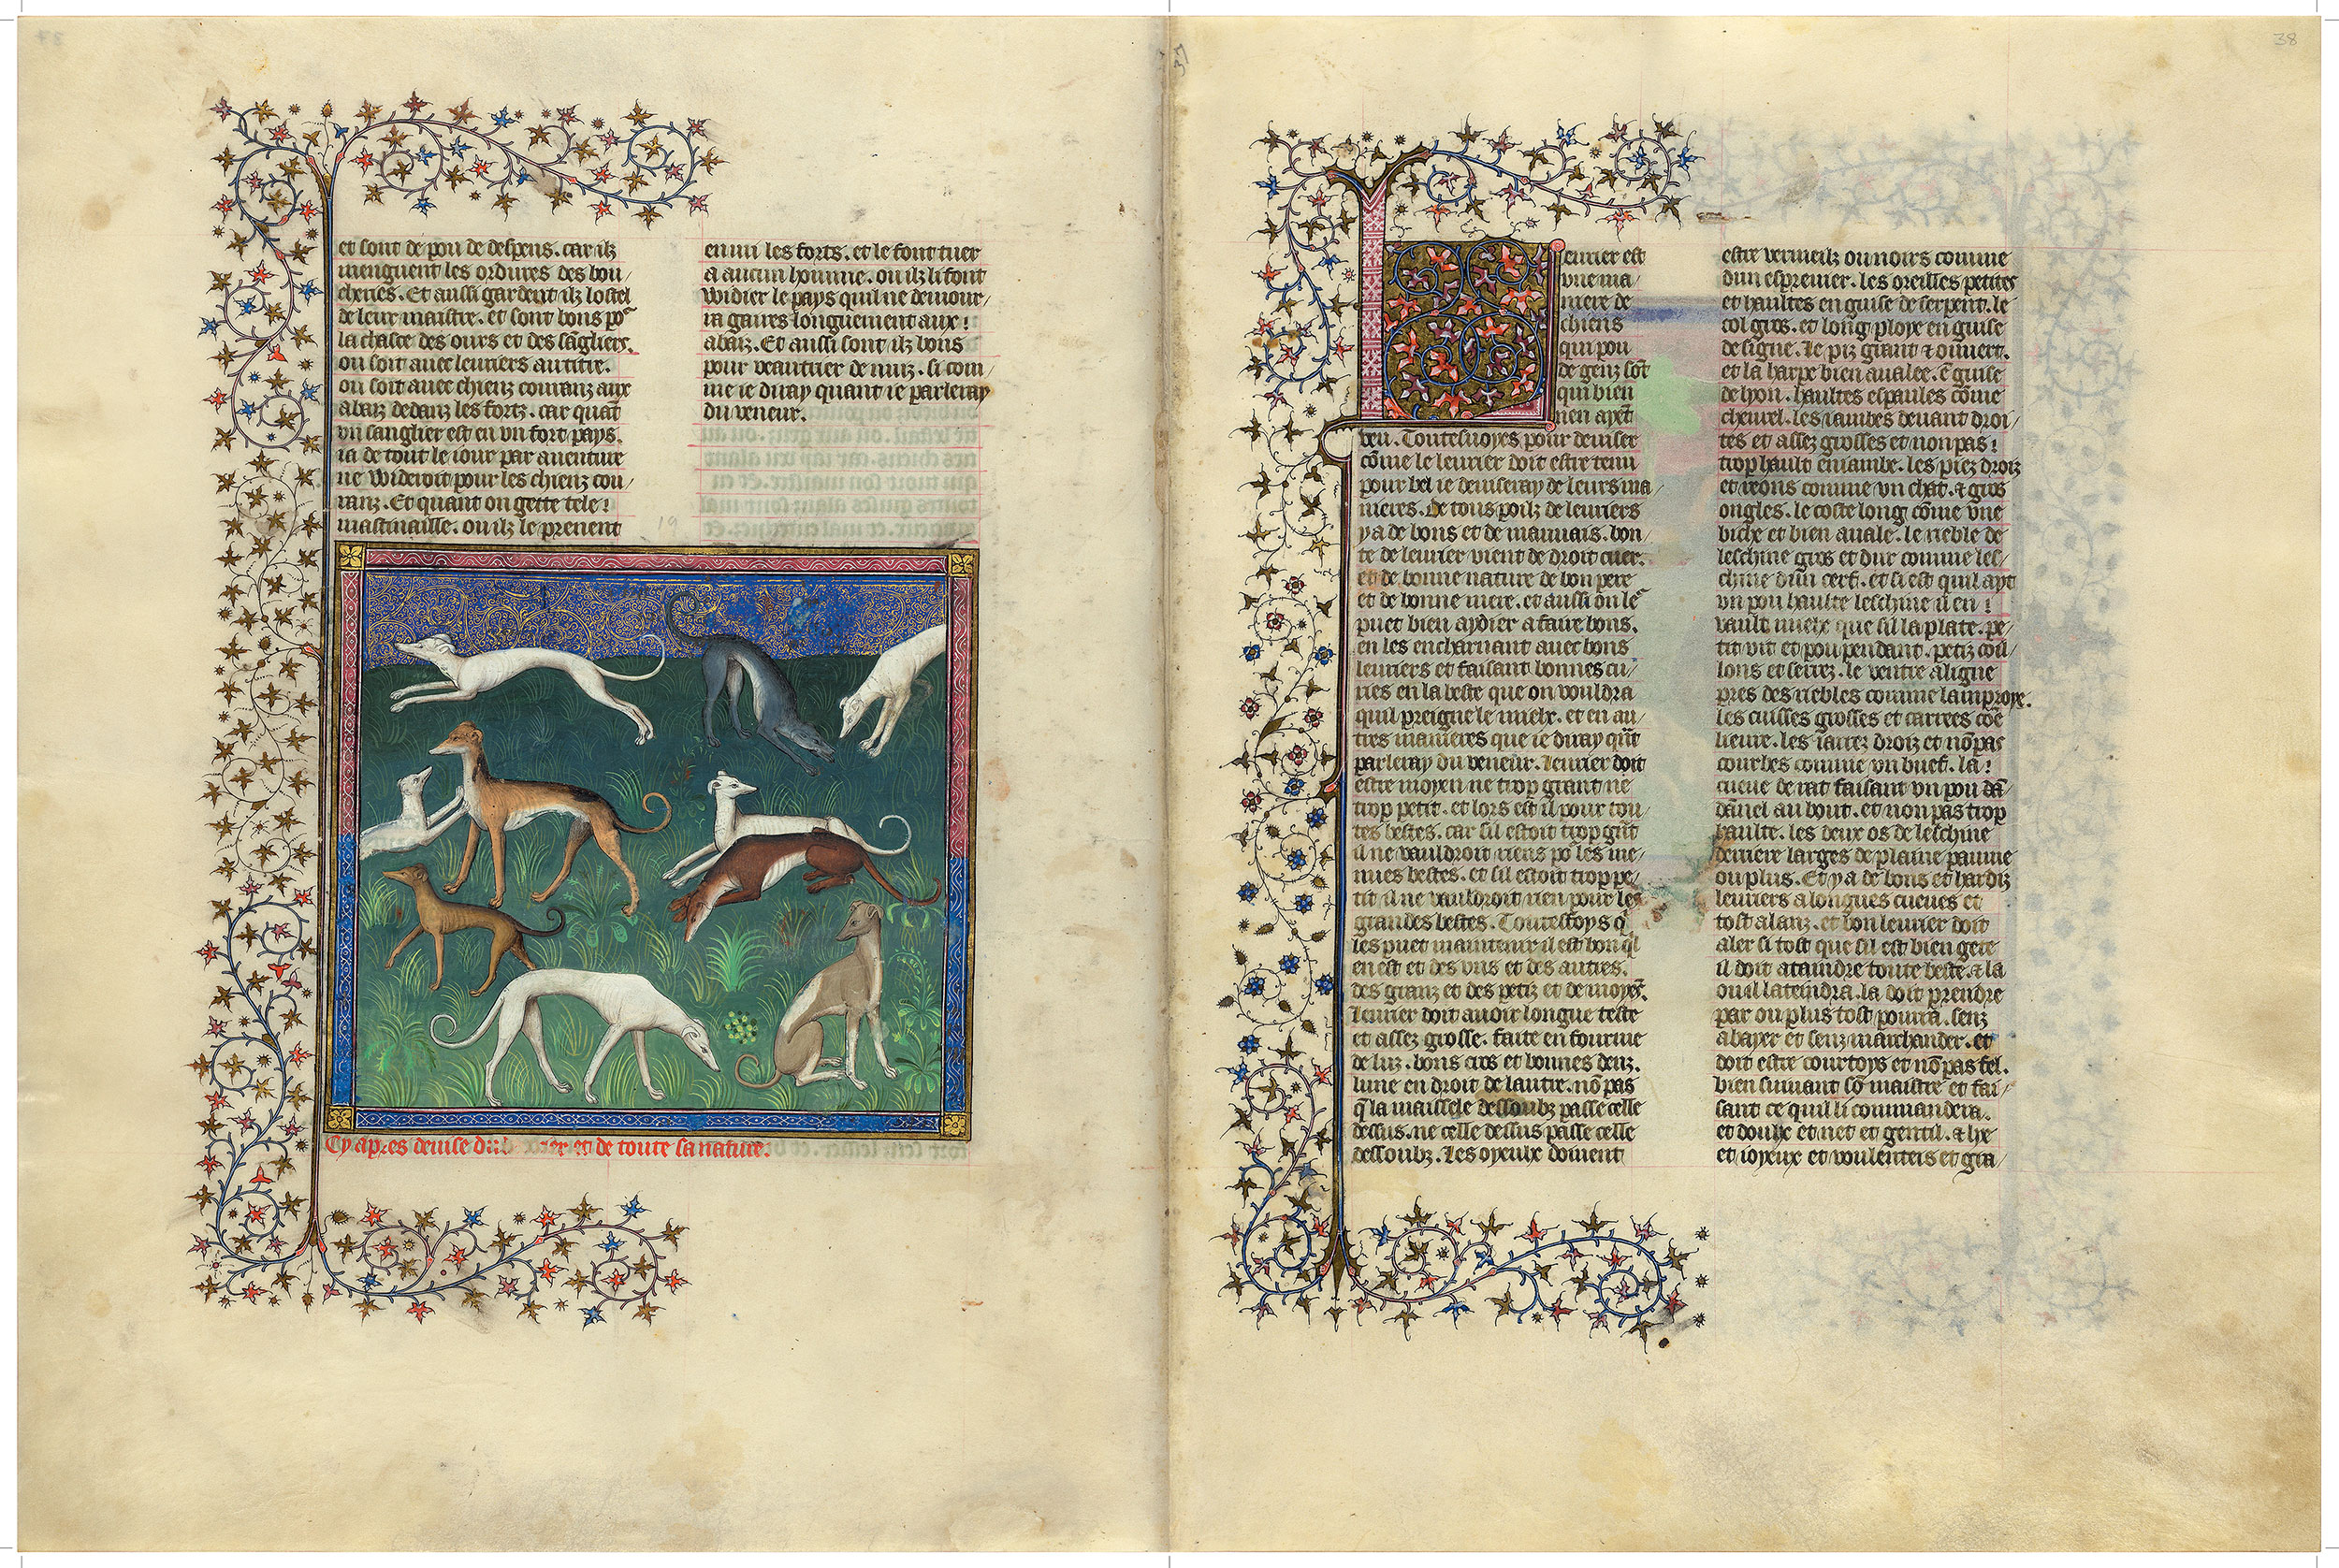 et sont de pou de despens. car ilz
menguent les ordures des bou/
cheries. Et aussi gardent ilz lostel
de leur maistre. et sont bons po᷑
la chasce des ours et des sãgliers.
ou soit auec leuriers au titre.
ou soit auec chienz couranz aux
abaiz dedanz les fortz. car quãt
vn sanglier est en vn fort pays.
ia de tout le iour par auenture
ne wideroit pour les chienz cou/
ranz. Et quant on gette tele!
mastinaille. ou ilz le prenent
enmi les forts. et le font tuer
a aucun homme. ou ilz li font
widier le pays quil ne demour/
ra gaires longuement aux!
abaiz. Et aussi sont ilz bons
pour veautrer de nuiz. si com/
me ie diray quant ie parleray
du veneur.
19
Cy apres deuise du et de toute sa nature.
37
38
Leurier est
vne ma/
niere de
chiens
qui pou
de genz sõt
qui bien
rien ayẽt
veu. Toutesuoyes pour deuiser
cõme le leurier doit estre tenu
pour bel ie deuiseray de leurs ma/
nieres. De tous poilz de leuriers
y a de bons et de mauuais. bon/
te de leurier vient de droit cuer.
et de bonne nature de bon pere
et de bonne mere. et aussi on le᷑
puet bien aydier a faire bons.
en les encharnant auec bons
leuriers et faisant bonnes cu/
riees en la beste que on vouldra
quil preigne le mielx. et en au/
tres manieres que ie diray quãt
parleray du veneur. Leurier doit
estre moyen ne trop grant ne
trop petit. et lors est il pour tou/
tes bestes. car sil estoit trop grãt
il ne vauldroit riens po᷑ les me/
nues bestes. et sil estoit trop pe/
tit il ne vauldroit rien pour les
grandes bestes. Toutesfoys q̃
les puet maintenir il est bon q̃l
en est et des vns et des autres.
des granz et des petiz et de moyẽs.
Leurier doit auoir longue teste
et assez grosse. faite en fourme
de luz. bons cros et bonnes denz.
lune en droit de lautre. nõ pas
q̃ la maissele dessoubz passe celle
dessus. ne celle dessus passe celle
dessoubz. Les oyeulx doiuent
estre vermeilz ou noirs comme
dun espreuier. les oreilles petites
et haultes en guise de serpent. le
col gros. et long ploye en guise
de signe. Le piz grant et ouuert.
et la harpe bien aualee. ẽ guise
de lyon. haultes espaules cõme
cheurel. les iambes deuant droi/
tes et assez grosses et non pas!
trop hault eniambe. les piez droiz
et reons comme vn chat. et gros
ongles. le coste long cõme vne
biche et bien auale. le rieble de
leschine gros et dur comme les/
chine dun cerf. et si est quil ayt
vn pou haulte leschine il en!
vault mielx que sil la plate. pe/
tit vit et pou pendant. petiz cou/
lons et serrez. le ventre aligne
pres des riebles comme lamproye.
les cuisses grosses et carrees cõe
lieure. les iarrez droiz et nõ pas
courbes comme vn buef. la!
cueue de rat faisant vn pou dã/
dãnel au bout. et non pas trop
haulte. les deux os de leschine
derriere larges de plaine paume
ou plus. Et y a de bons et hardiz
leuriers a longues cueues et
tost alanz. et bon leurier doit
aler si tost que sil est bien gete
il doit ataindre toute beste. et la
ou il lateindra. la doit prendre
par ou plus tost pourra. senz
abayer et senz marchander. et
doit estre courtoys et nõ pas fel.
bien suiuant sõ maistre et fai/
sant ce quil li commandera.
et doulx et net et gentil. et lye
et ioyeux et voulenteis et gra/